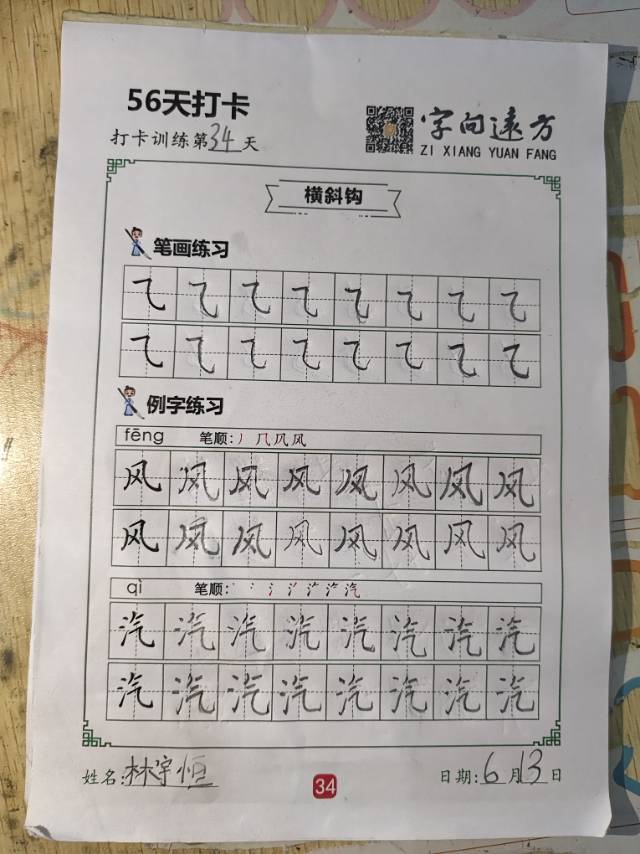 56天打卡
打卡训练第34天
字向远方
ZI XIANG YUAN FANG
横斜钩
笔画练习
⺄ ⺄ ⺄ ⺄ ⺄ ⺄ ⺄ ⺄
⺄ ⺄ ⺄ ⺄ ⺄ ⺄ ⺄ ⺄
例字练习
fēng 笔顺:丿几凡风
风 风 风 风 风 风 风 风
风 风 风 风 风 风 风 风
qì 笔顺:
汽 汽 汽 汽 汽 汽 汽 汽
汽 汽 汽 汽 汽 汽 汽 汽
姓名:林宇恒
34
日期:6月13日